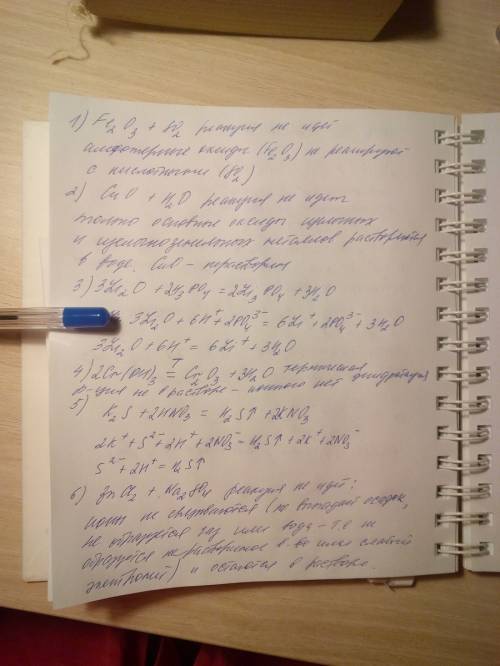 1) Fe2O3 + SO2 реакция не идет
амфотерные оксиды (Fe2O3) не реагируют
с кислотными (SO2)
2) CuO + H2O реакция не идет
только основные оксиды щелочных
и щелочноземельных металлов растворяются
в воде. CuO - нерастворим
3) 3Li2O + 2H3PO4 = 2Li3PO4 + 3H2O
3Li2O + 6H+ + 2PO4 3- = 6Li+ + 2PO4 3- + 3H2O
3Li2O + 6H+ = 6Li+ + 3H2O
4) 2Cr(OH)3 T= Cr2O3 + 3H2O термическая
р-ция не в растворе - ионного нет
5)
K2S + 2HNO3 = H2S↑ + 2KNO3
2K+ + S2- + 2H+ + 2NO3- = H2S↑ + 2K+ + 2NO3-
S2- + 2H+ = H2S↑
6) ZnCl2 + Na2SO4 реакция не идет:
ионы не связываются (не выпадает осадок,
не образуется газ или вода - т.е не
образуется нерастворимое в-во или слабый
электролит) и остаются в растворе.